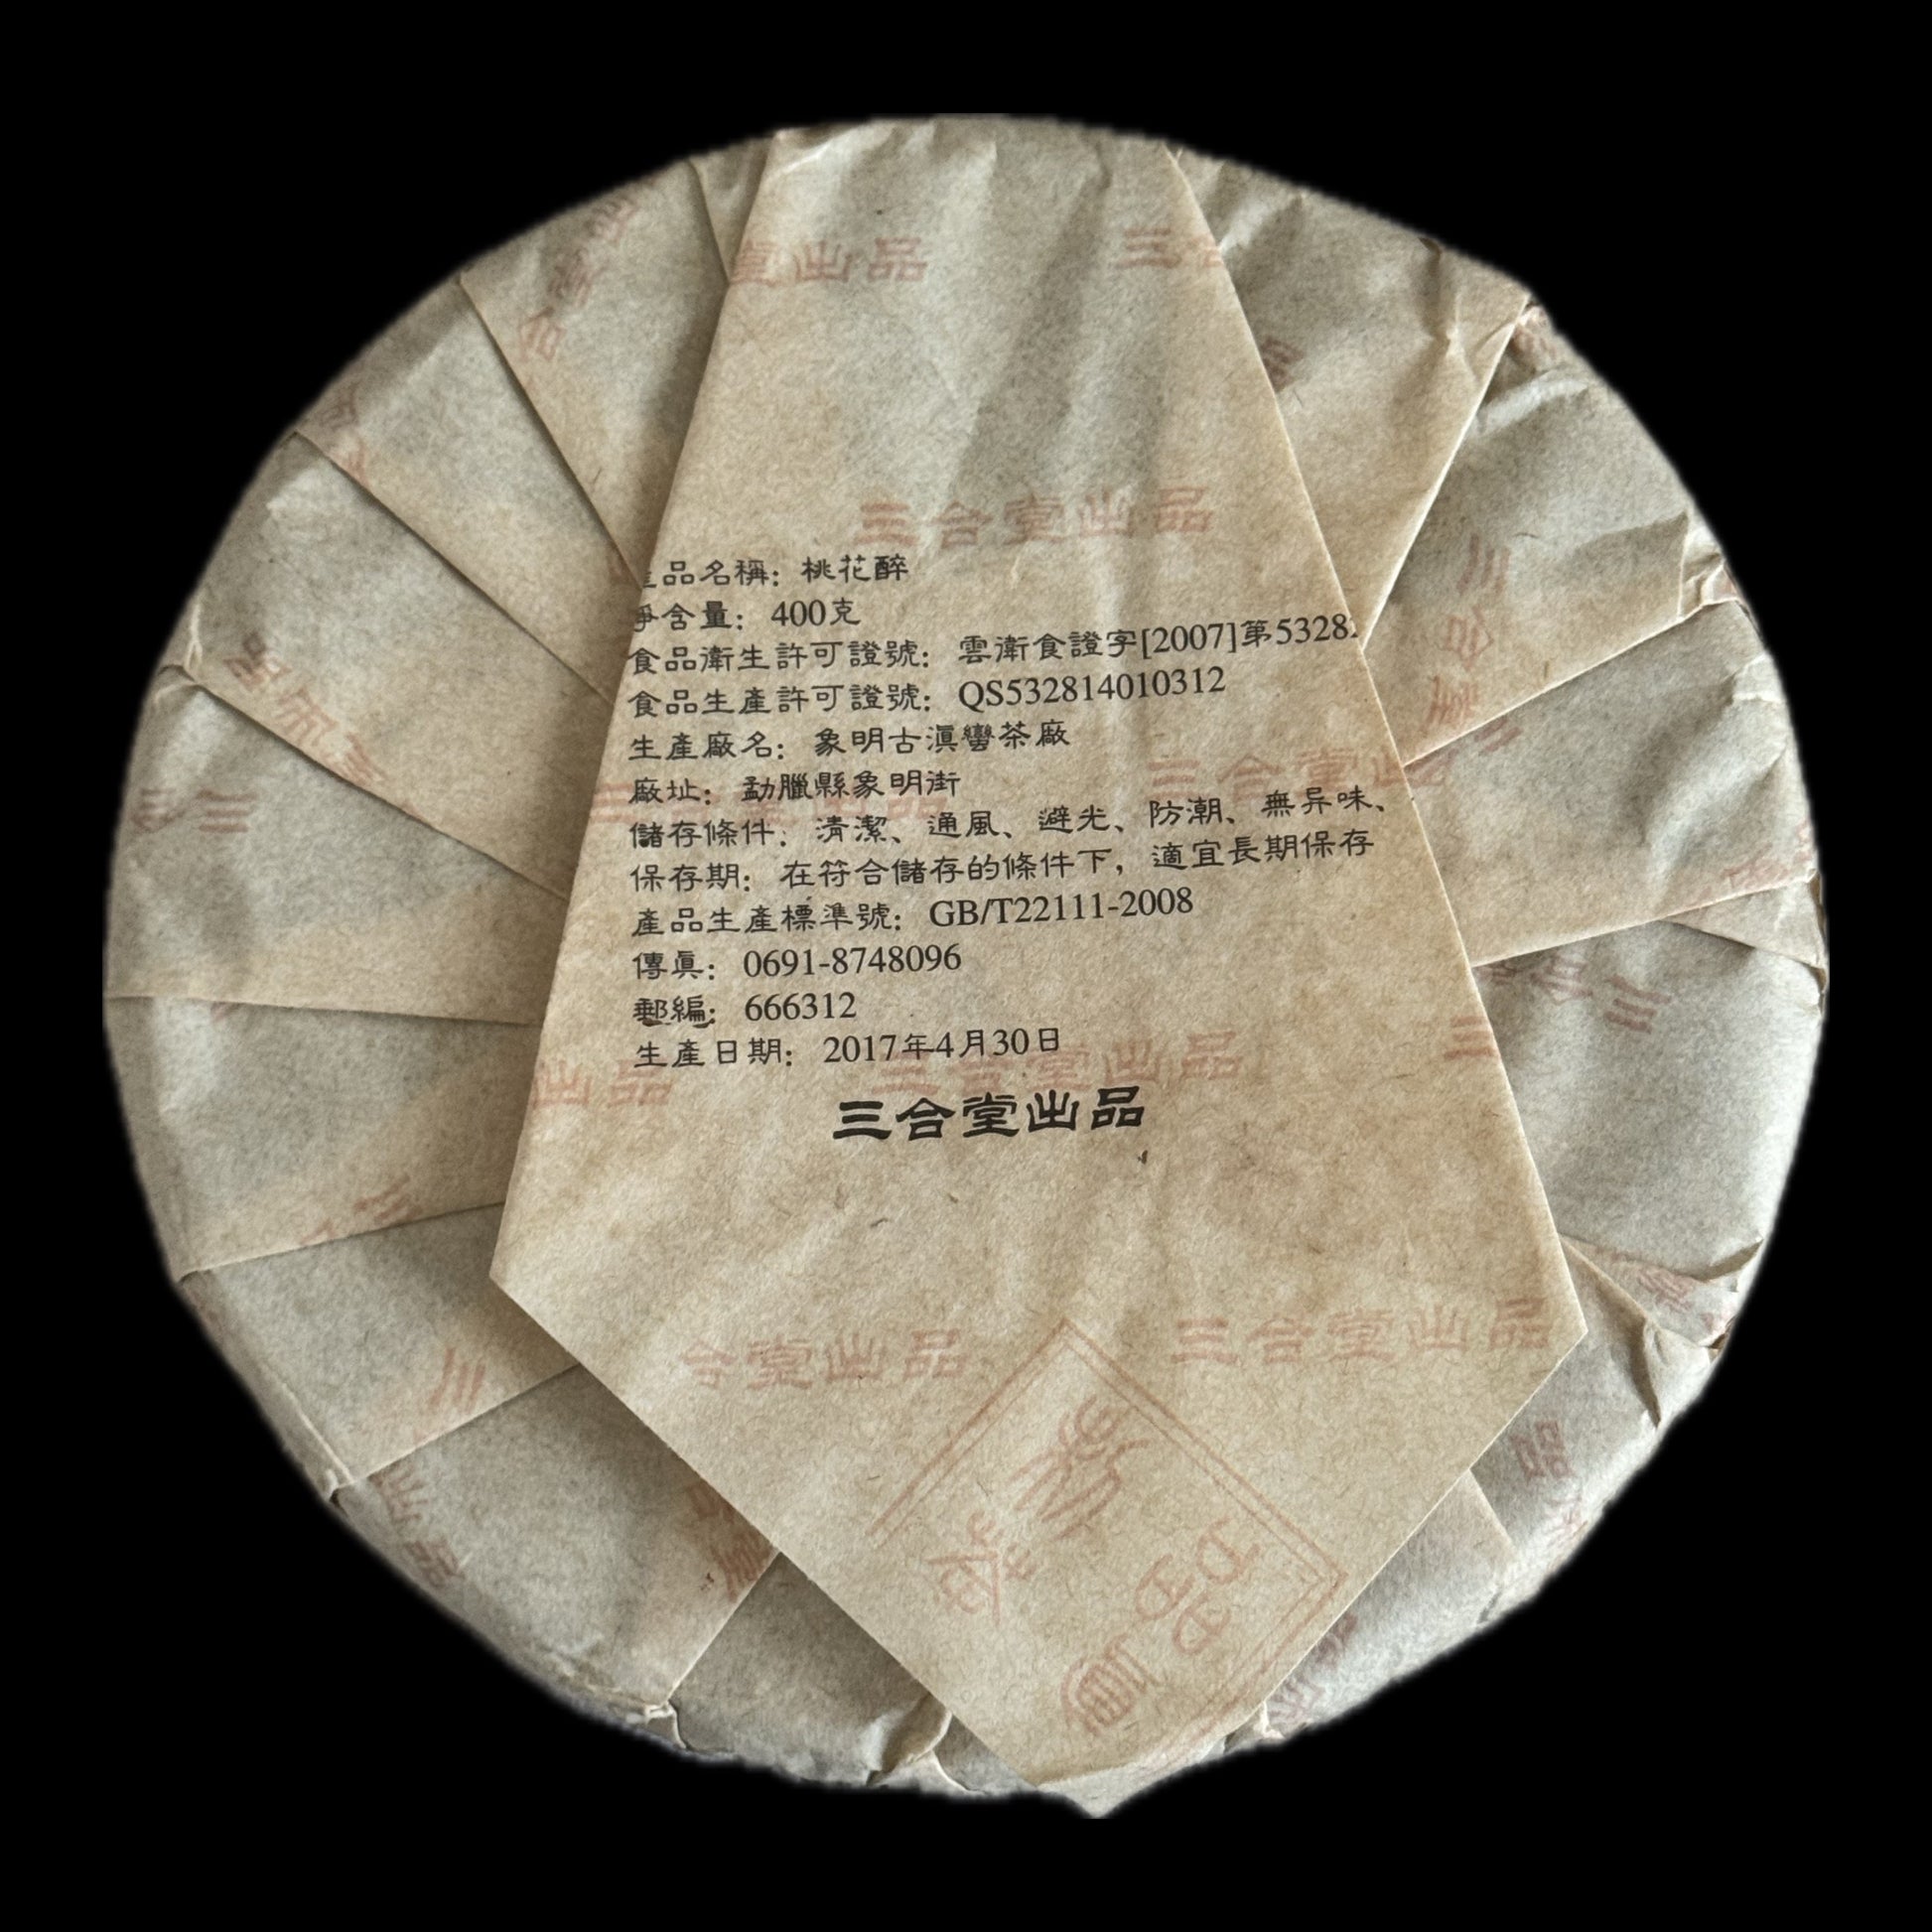 堂出品
三合
三合堂出品
品名稱：桃花醉
淨含量：400克
食品衛生許可證號：雲衛食證字[2007]第5328
食品生產許可證號：QS532814010312
生產廠名：象明古滇巒茶廠
廠址：勐臘縣象明街
三合堂出
儲存條件：清潔、通風、避光、防潮、無异味、
保存期：在符合儲存的條件下，適宜長期保存
產品生產標準號：GB/T22111-2008
傳真：0691-8748096
郵編：666312
生產日期：2017年4月30日
出品
三合堂出品
三合堂出品
合堂出品
三合堂出品